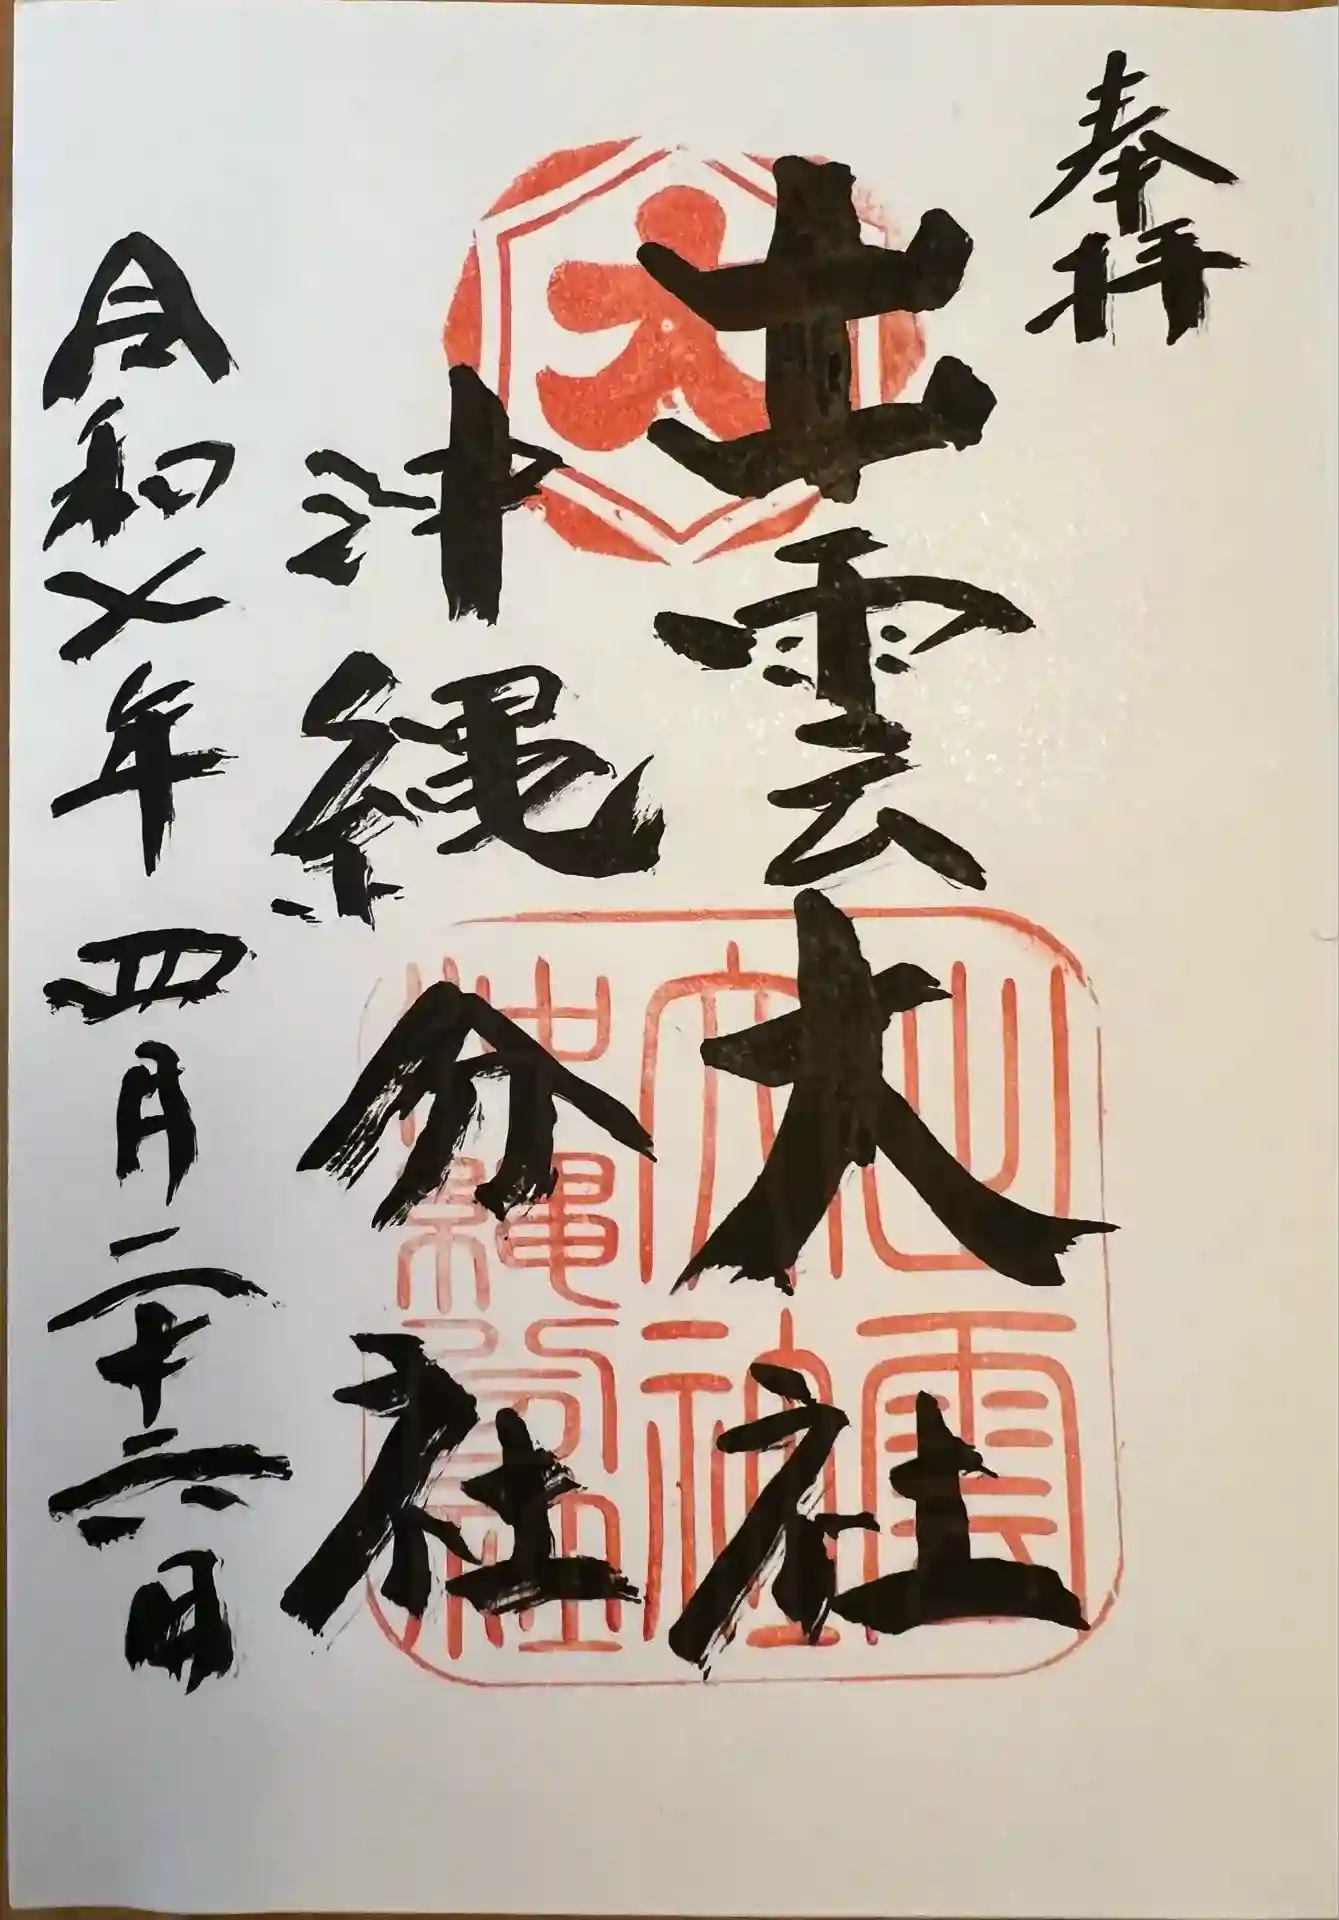 奉拝
出雲大社
沖縄分社
令和七年四月二十六日
大
出雲大社沖縄分社